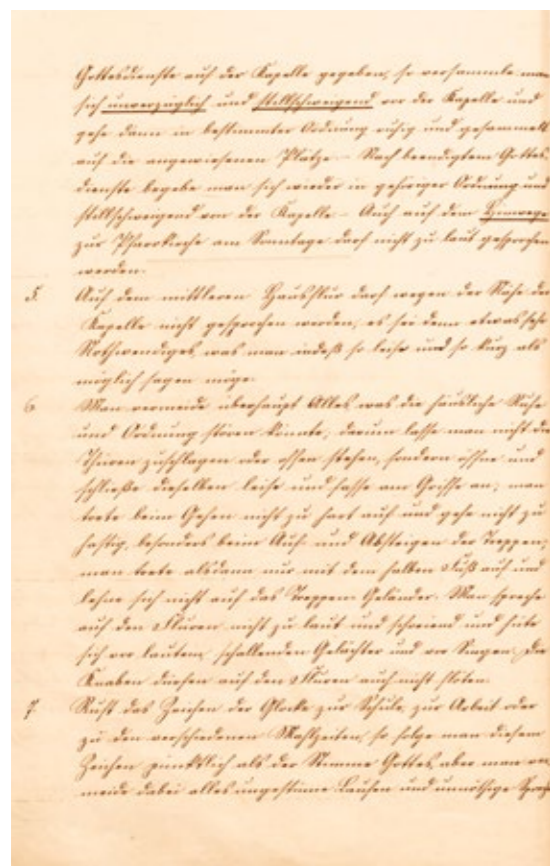 Gottesdienste auf der Kapelle gegeben, so versammle man
sich unverzüglich und stillschweigend vor der Kapelle und
gehe dann in bestimmter Ordnung ruhig und gesammelt
auf die angewiesenen Plätze. – Nach beendigtem Gottes
dienste begebe man sich wieder in gehöriger Ordnung und
stillschweigend von der Kapelle. – Auch auf dem Hinwege
zur Pfarrkirche am Sonntage darf nicht zu laut gesprochen
werden.
5. Auf dem mittleren Hausflur darf wegen der Nähe der
Kapelle nicht gesprochen werden, es sei denn etwas sehr
Nothwendiges, was man indeß so leise und so kurz als
möglich sagen möge.
6. Man vermeide überhaupt Alles was die häusliche Ruhe
und Ordnung stören könnte; darum lasse man nicht die
Thüren zuschlagen oder offen stehen, sondern öffne und
schließe dieselben leise und fasse am Griffe an; man
trete beim Gehen nicht zu hart auf und gehe nicht zu
hastig, besonders beim Auf- und Absteigen der Treppen;
man trete alsdann nur mit dem halben Fuß auf und
lehne sich nicht auf das Treppen Geländer. Man spreche
auf den Fluren nicht zu laut und schreiend und hüte
sich vor lautem, schallenden Gelächter und vor Singen. Die
Knaben dürfen auf den Fluren auch nicht flöten.
7. Ruft das Zeichen der Glocke zur Schule, zur Arbeit oder
zu den verschiedenen Mahlzeiten, so folge man diesem
Zeichen pünktlich als der Stimme Gottes, aber man ver
meide dabei alles ungestüme Laufen und unnöthige